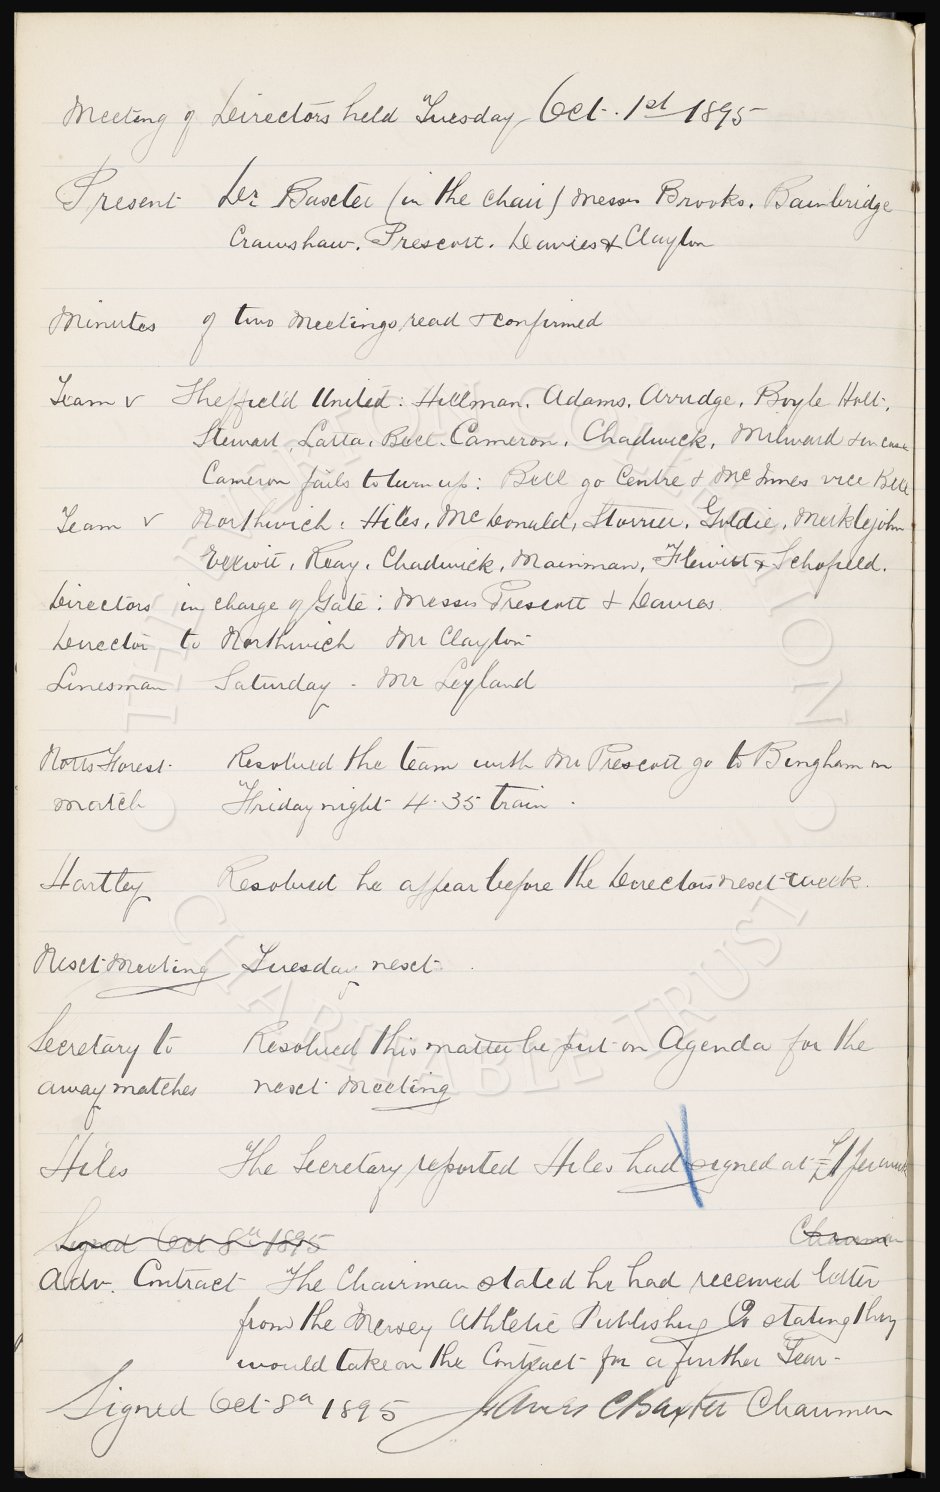 Meeting of Directors held Tuesday Oct. 1st 1895
Present Dr Baxter (in the chair) Messrs Brooks. Bainbridge
Crawshaw. Prescott. Davies & Clayton
Minutes of two Meetings read & confirmed
Team v Sheffield United: Hillman. Adams. Arridge. Boyle Holt.
Stewart, Latta. Bell. Cameron. Chadwick. Milward & in case
Cameron fails to turn up: Bell go Centre & McInnes vice Bell
Team v Northwich: Hiles. McDonald, Storrier. Goldie. Meiklejohn
Elliott, Reay. Chadwick, Mainman, Flewitt & Schofield.
Directors in charge of Gate: Messrs Prescott & Davies
Director to Northwich Mr Clayton
Linesman Saturday - Mr Leyland
Notts Forest Resolved the team with Mr Prescott go to Bingham on
match Friday night 4.35 train.
Hartley Resolved he appear before the Directors next week.
Next Meeting Tuesday next.
Secretary to Resolved this matter be put on Agenda for the
away matches next Meeting
Hiles The Secretary reported Hiles had signed at £1 per week
Signed Oct 8th 1895 Chairman
Adv. Contract The Chairman stated he had received letter
from the Mersey Athletic Publishing Co stating they
would take on the Contract for a further Year.
Signed Oct 8th 1895 James C Baxter Chairman
THE EVERTON COLLECTION
CHARITABLE TRUST